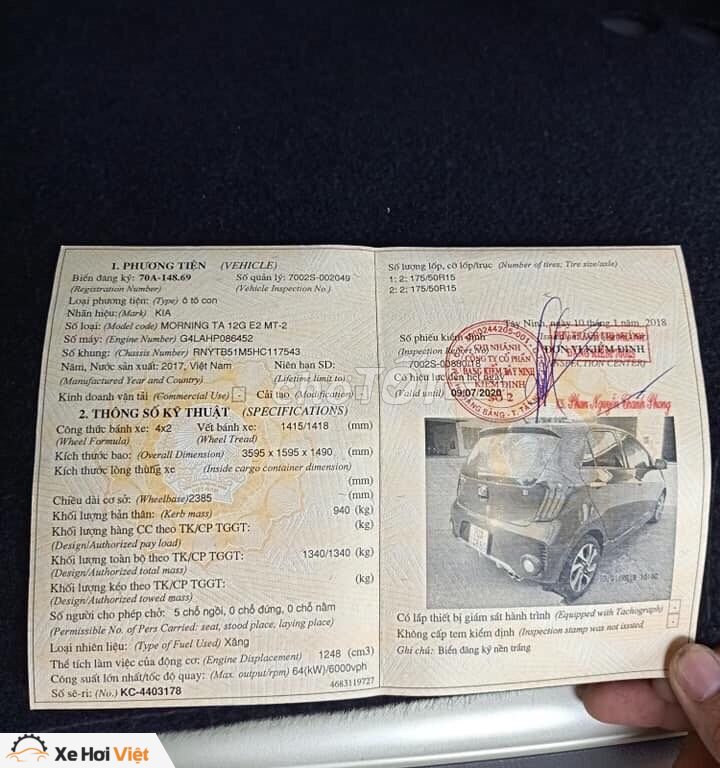 1. PHƯƠNG TIỆN (VEHICLE)
Biển đăng ký: 70A-148.69 Số quản lý: 7002S-002049
(Registration Number) (Vehicle Inspection No.)
Loại phương tiện: (Type) ô tô con
Nhãn hiệu: (Mark) KIA
Số loại: (Model code) MORNING TA 12G E2 MT-2
Số máy: (Engine Number) G4LAHP086452
Số khung: (Chassis Number) RNYTB51M5HC117543
Năm, Nước sản xuất: 2017, Việt Nam Niên hạn SD:
(Manufactured Year and Country) (Lifetime limit to)
Kinh doanh vận tải (Commercial Use) Cải tạo (Modification)
2. THÔNG SỐ KỸ THUẬT (SPECIFICATIONS)
Công thức bánh xe: 4x2 Vết bánh xe: 1415/1418 (mm)
(Wheel Formula) (Wheel Tread)
Kích thước bao: (Overall Dimension) 3595 x 1595 x 1490 (mm)
Kích thước lòng thùng xe (Inside cargo container dimension)
(mm)
Chiều dài cơ sở: (Wheelbase) 2385 (mm)
Khối lượng bản thân: (Kerb mass) 940 (kg)
Khối lượng hàng CC theo TK/CP TGGT: (kg)
(Design/Authorized pay load)
Khối lượng toàn bộ theo TK/CP TGGT: 1340/1340 (kg)
(Design/Authorized total mass)
Khối lượng kéo theo TK/CP TGGT: (kg)
(Design/Authorized towed mass)
Số người cho phép chở: 5 chỗ ngồi, 0 chỗ đứng, 0 chỗ nằm
(Permissible No. of Pers Carried: seat, stood place, laying place)
Loại nhiên liệu: (Type of Fuel Used) Xăng
Thể tích làm việc của động cơ: (Engine Displacement) 1248 (cm3)
Công suất lớn nhất/tốc độ quay: (Max. output/rpm) 64(kW)/6000vph
4683119727
Số sê-ri: (No.) KC-4403178
Số lượng lốp, cỡ lốp/trục (Number of tires; Tire size/axle)
1: 2; 175/50R15
2: 2; 175/50R15
Tây Ninh, ngày 10 tháng 1 năm 2018
Số phiếu kiểm định
(Inspection Report No)
ĐƠN VỊ KIỂM ĐỊNH
(INSPECTION CENTER)
Có hiệu lực đến hết ngày
(Valid until) 09/07/2020
CHI NHÁNH
CÔNG TY CỔ PHẦN
ĐĂNG KIỂM TÂY NINH
KIỂM ĐỊNH
SỐ 2
KS. Phan Nguyễn Thanh Phong
Có lắp thiết bị giám sát hành trình (Equipped with Tachograph)
Không cấp tem kiểm định (Inspection stamp was not issued
Ghi chú: Biển đăng ký nền trắng
Xe Hơi Việt